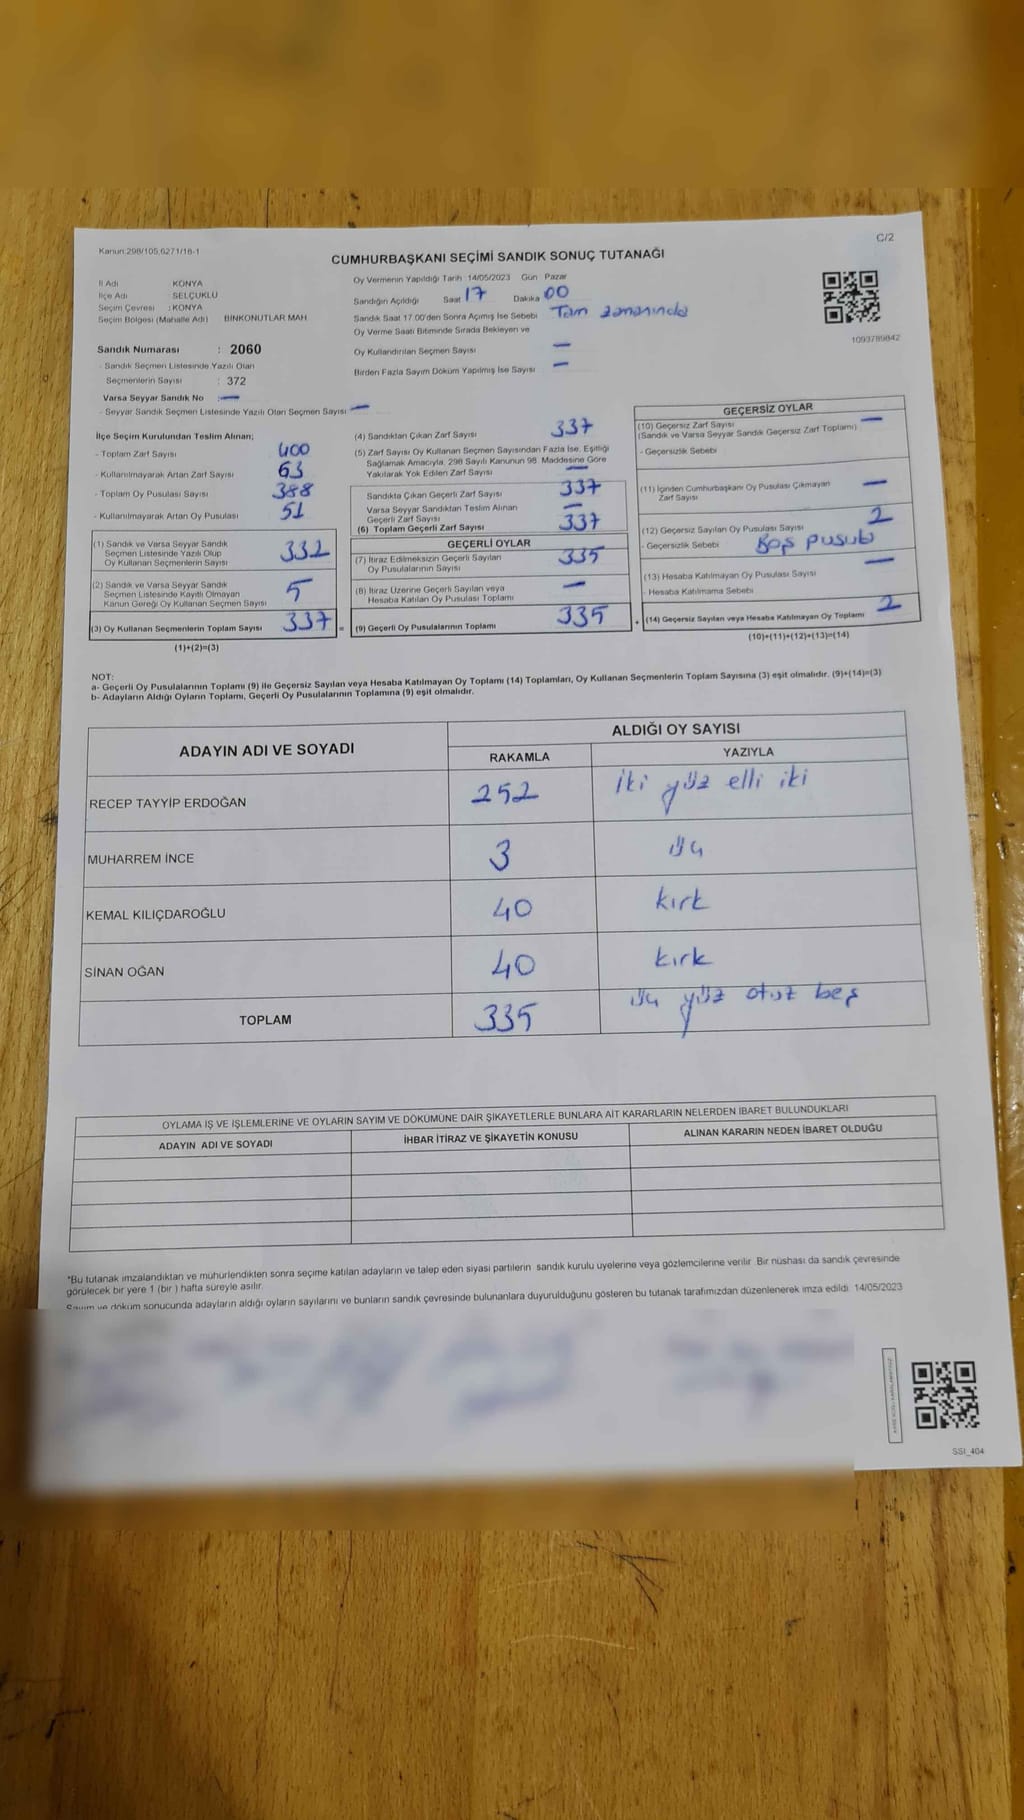 Kanun:298/105,6271/16-1
C/2
CUMHURBAŞKANI SEÇİMİ SANDIK SONUÇ TUTANAĞI
İl Adı KONYA
İlçe Adı SELÇUKLU
Seçim Çevresi : KONYA
Seçim Bölgesi (Mahalle Adı) BİNKONUTLAR MAH
Sandık Numarası : 2060
- Sandık Seçmen Listesinde Yazılı Olan
Seçmenlerin Sayısı : 372
Varsa Seyyar Sandık No : —
- Seyyar Sandık Seçmen Listesinde Yazılı Olan Seçmen Sayısı —
Oy Vermenin Yapıldığı Tarih :14/05/2023 Gün Pazar
Sandığın Açıldığı Saat 17 Dakika 00
Sandık Saat 17.00'den Sonra Açımış İse Sebebi Tam zamanında
Oy Verme Saati Bitiminde Sırada Bekleyen ve
Oy Kullandırılan Seçmen Sayısı —
Birden Fazla Sayım Döküm Yapılmış İse Sayısı —
1093789842
İlçe Seçim Kurulundan Teslim Alınan;
- Toplam Zarf Sayısı 400
- Kullanılmayarak Artan Zarf Sayısı 63
- Toplam Oy Pusulası Sayısı 388
- Kullanılmayarak Artan Oy Pusulası 51
(1) Sandık ve Varsa Seyyar Sandık
Seçmen Listesinde Yazılı Olup
Oy Kullanan Seçmenlerin Sayısı 332
(2) Sandık ve Varsa Seyyar Sandık
Seçmen Listesinde Kayıtlı Olmayan
Kanun Gereği Oy Kullanan Seçmen Sayısı 5
(3) Oy Kullanan Seçmenlerin Toplam Sayısı 337 =
(1)+(2)=(3)
(4) Sandıktan Çıkan Zarf Sayısı 337
(5) Zarf Sayısı Oy Kullanan Seçmen Sayısından Fazla İse, Eşitliği
Sağlamak Amacıyla, 298 Sayılı Kanunun 98. Maddesine Göre
Yakılarak Yok Edilen Zarf Sayısı —
Sandıkta Çıkan Geçerli Zarf Sayısı 337
Varsa Seyyar Sandıktan Teslim Alınan
Geçerli Zarf Sayısı —
(6) Toplam Geçerli Zarf Sayısı 337
GEÇERLİ OYLAR
(7) İtiraz Edilmeksizin Geçerli Sayılan
Oy Pusulalarının Sayısı 335
(8) İtiraz Üzerine Geçerli Sayılan veya
Hesaba Katılan Oy Pusulası Toplamı —
(9) Geçerli Oy Pusulalarının Toplamı 335 +
GEÇERSİZ OYLAR
(10) Geçersiz Zarf Sayısı —
(Sandık ve Varsa Seyyar Sandık Geçersiz Zarf Toplamı)
- Geçersizlik Sebebi
(11) İçinden Cumhurbaşkanı Oy Pusulası Çıkmayan
Zarf Sayısı —
(12) Geçersiz Sayılan Oy Pusulası Sayısı 2
- Geçersizlik Sebebi Boş pusula
(13) Hesaba Katılmayan Oy Pusulası Sayısı —
- Hesaba Katılmama Sebebi
(14) Geçersiz Sayılan veya Hesaba Katılmayan Oy Toplamı 2
(10)+(11)+(12)+(13)=(14)
NOT:
a- Geçerli Oy Pusulalarının Toplamı (9) ile Geçersiz Sayılan veya Hesaba Katılmayan Oy Toplamı (14) Toplamları, Oy Kullanan Seçmenlerin Toplam Sayısına (3) eşit olmalıdır. (9)+(14)=(3)
b- Adayların Aldığı Oyların Toplamı, Geçerli Oy Pusulalarının Toplamına (9) eşit olmalıdır.
ADAYIN ADI VE SOYADI
ALDIĞI OY SAYISI
RAKAMLA YAZIYLA
RECEP TAYYİP ERDOĞAN 252 İki yüz elli iki
MUHARREM İNCE 3 üç
KEMAL KILIÇDAROĞLU 40 kırk
SİNAN OĞAN 40 kırk
TOPLAM 335 üç yüz otuz beş
OYLAMA İŞ VE İŞLEMLERİNE VE OYLARIN SAYIM VE DÖKÜMÜNE DAİR ŞİKAYETLERLE BUNLARA AİT KARARLARIN NELERDEN İBARET BULUNDUKLARI
ADAYIN ADI VE SOYADI İHBAR İTİRAZ VE ŞİKAYETİN KONUSU ALINAN KARARIN NEDEN İBARET OLDUĞU
*Bu tutanak imzalandıktan ve mühürlendikten sonra seçime katılan adayların ve talep eden siyasi partilerin sandık kurulu üyelerine veya gözlemcilerine verilir. Bir nüshası da sandık çevresinde
görülecek bir yere 1 (bir ) hafta süreyle asılır.
Sayım ve döküm sonucunda adayların aldığı oyların sayılarını ve bunların sandık çevresinde bulunanlara duyurulduğunu gösteren bu tutanak tarafımızdan düzenlenerek imza edildi. 14/05/2023
SSI_404